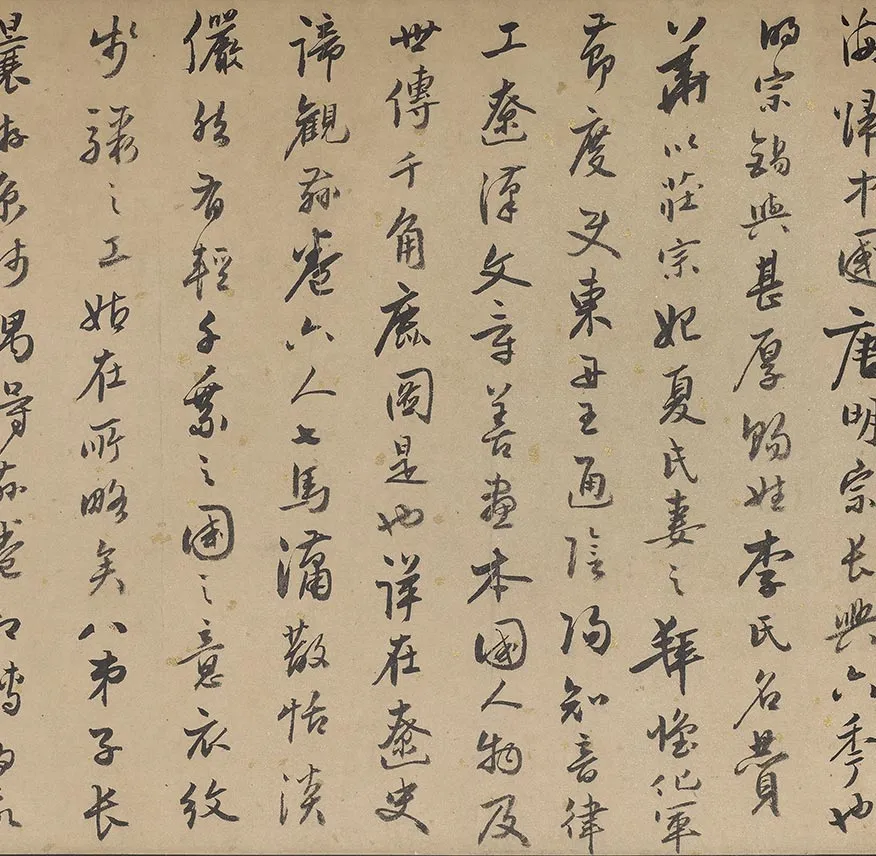 海歸中國唐明宗長興六季也
明宗錫與甚厚賜姓李氏名贊
華以莊宗妃夏氏妻之拜懷化軍
節度使東丹王通陰陽知音律
工遼漢文章善畫本國人物及
世傳千角鹿圖是也詳在遼史
諦觀茲卷六人七馬瀟散恬淡
儼然有輕千乘之國之意衣紋
步驟之工姑在所略矣八弟子長
曩游京步偶得茲卷